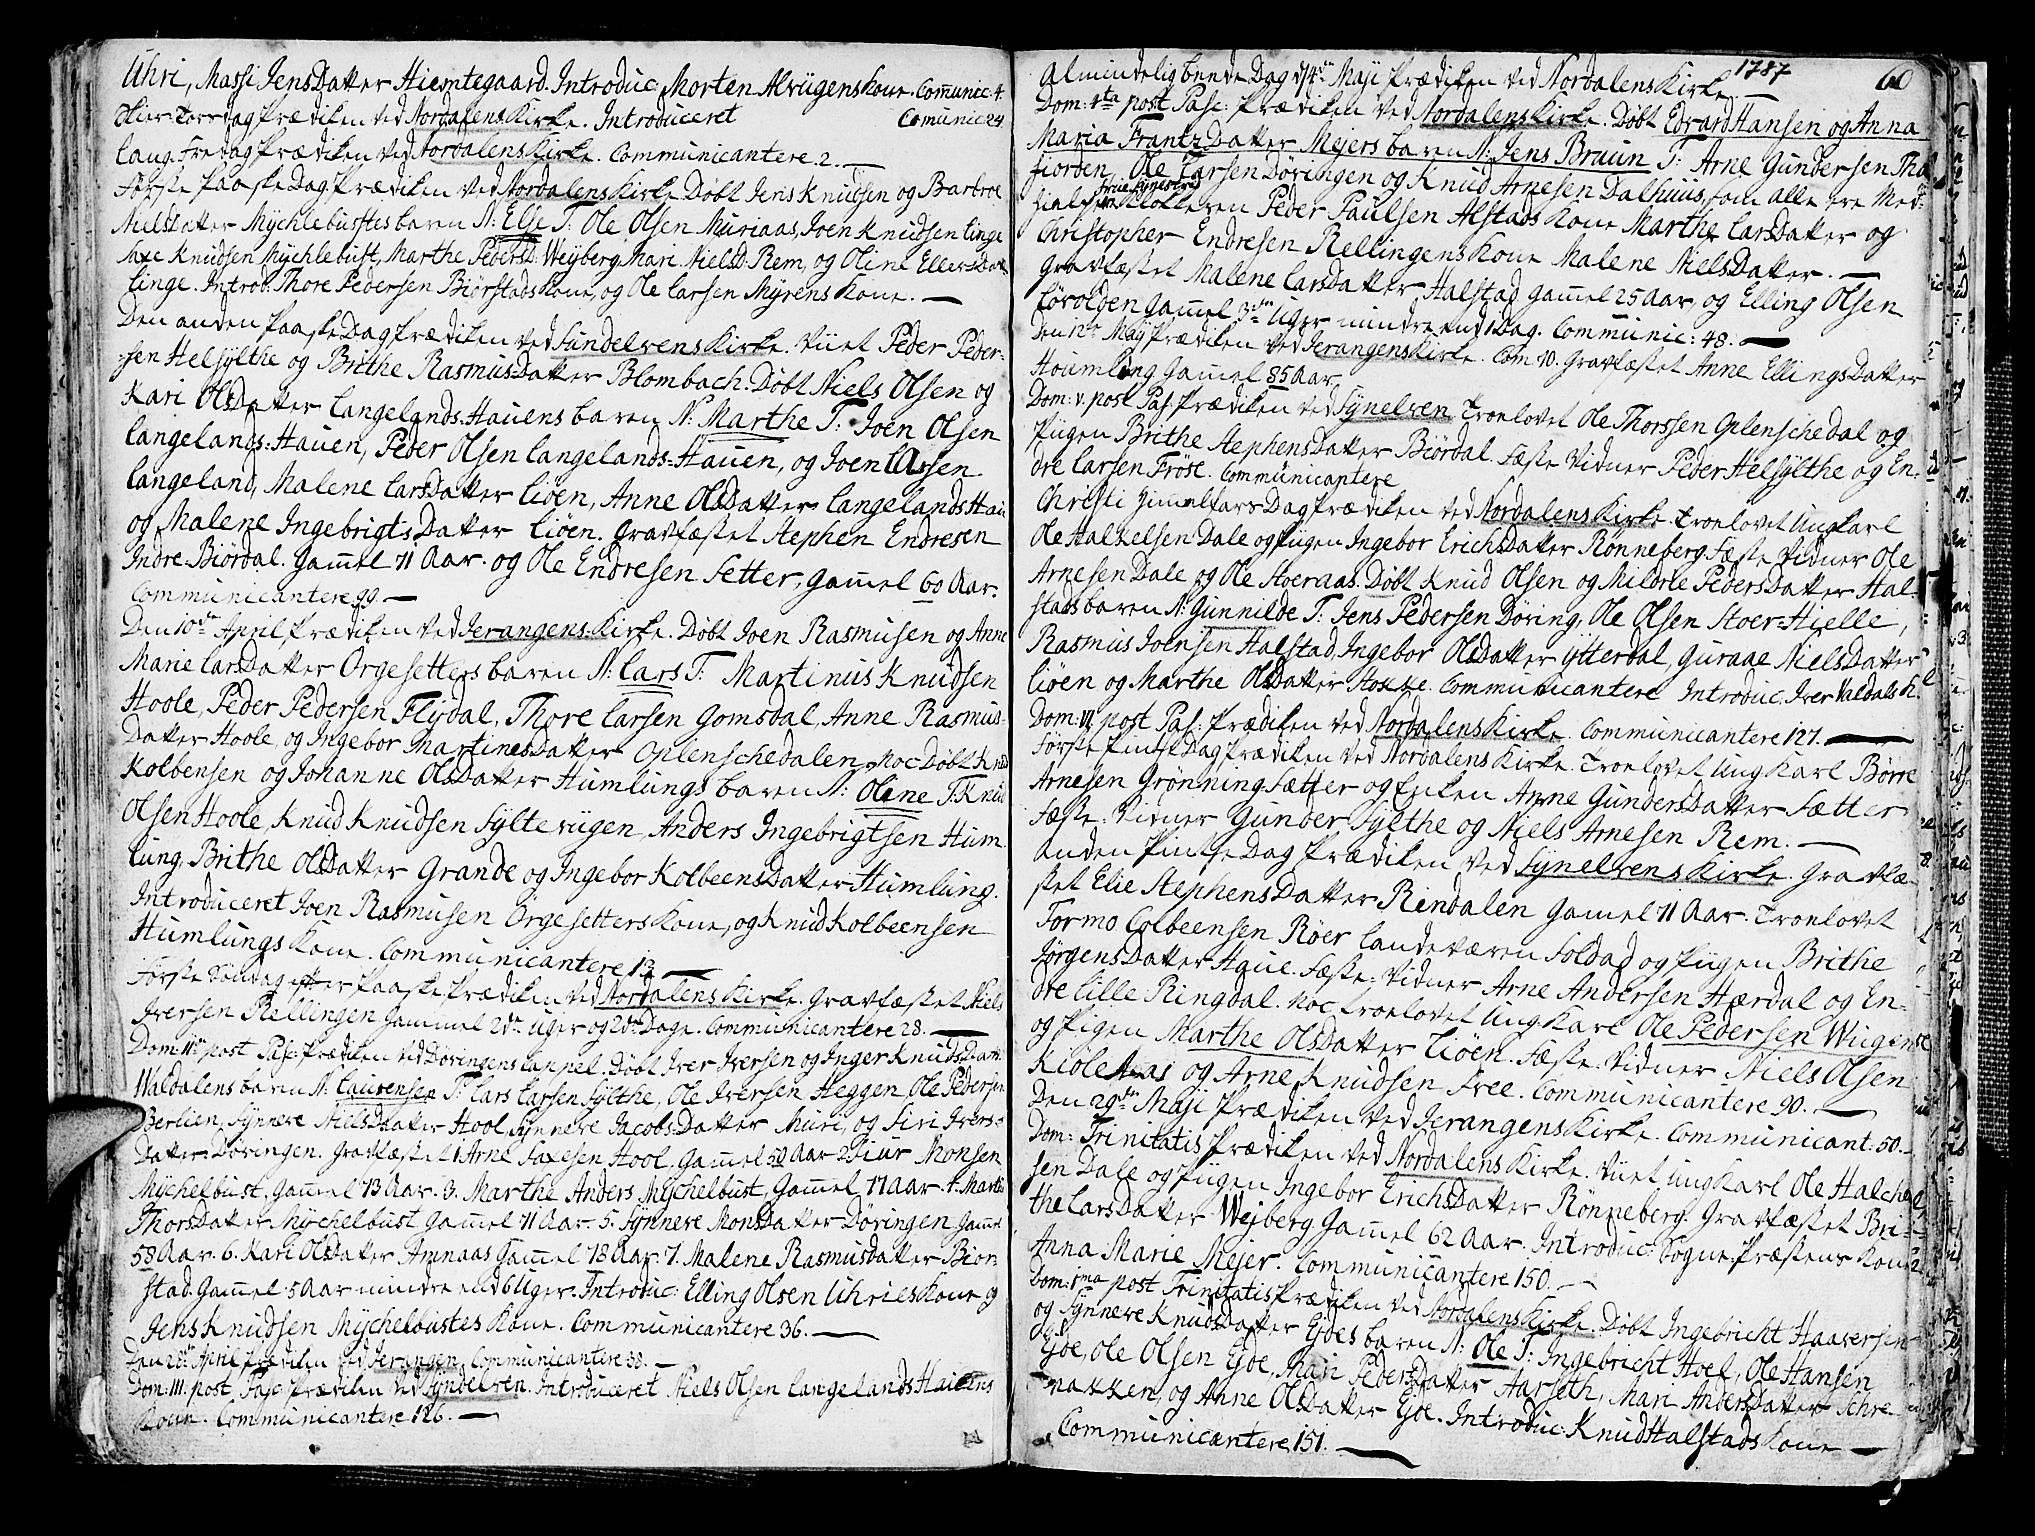 Uhri, Massi JensDatter Hiemtegaard. Introduc. Morten Alvügens Kone. Comunic. 4.
Skier-Torsdag Prædiken ved Nordalens Kirke. Introduceret Comunic 24
Lang-Fredag Prædiken ved Nordalens Kirke. Communicantere 2. —
Første PaaskeDag Prædiken ved Nordalens Kirke Døbt Jens Knudsen og Barbroe
Nielsdatter Mychlebustes baren N: Else T: Ole Olsen Muriaas, Joen Knudsen Linge
Saxe Knudsen Mychlebust, Marthe Pedersd: Weyberg, Mari Nielsd. Rem, og Oline Ellersdatt
Linge. Introd: Thore Pedersen Biørstads Kone, og Ole Larsen Myrens Kone. —
Den anden PaaskeDag Prædiken ved Sündelvens Kirke. Viiet Peder Peder-
sen Helsylthe og Brithe RasmusDatter Blombach. Døbt Niels Olsen og
Kari OlsDatter Langelands-Hauens baren N: Marthe T: Joen Olsen
Langelands-Hauen, Peder Olsen Langelands-Hauen, og Joen Larsen
Langeland, Malene LarsDatter Liøen, Anne OlsDatter Langelands Hau
og Malene IngebrigtsDatter Liøen. Gravfæstet Stephen Endresen
Indre-Biørdal. Gamel 71 Aar. og Ole Endresen Setter, Gamel 60 Aar.
Communicantere 99 —
Den 10de April Prædiken ved Jerangens Kirke. Døbt Joen Rasmusen og Anne
Marie LarsDatter Ørgesetters baren N: Lars T: Martinus Knudsen
Hoole, Peder Pedersen Flydal, Thore Larsen Gomsdal, Anne Rasmus-
Datter Hoole, og Ingebor MartinesDatter Oplenschedalen. Noc Døbt Knud
Kolbensen og Johanne OlsDatter Humlungs baren N: Oline T: Knud
Olsen Hoole, Knud Knudsen Syltevügen, Anders Ingebrigtsen Hum
lung, Brithe OlsDatter Grande og Ingebor KolbeensDatter Humlung.
Introduceret Joen Rasmusen Ørgesetters Kone, og Knud Kolbeensen
Humlungs Kone. Communicantere 13 —
Første Søndag efter Paaske Prædiken ved Nordalens Kirke. Gravfæstet Niels
Iversen Rellingen Gammel 2de Uger og 2de Dage. Communicantere 28. —
Dom: IIda post Pasc: Prædiken ved Døringens Cappel. Døbt Iver Iversen og Inger KnudsDatt
Waldalens baren N: Laurense T: Lars Larsen Sylthe, Ole Iversen Heggen, Ole Pedersen
Berlien, Synnøve NielsDaater Hool, Synneve JacobsDatter Muri, og Siri Ivers-
Datter Døringen. Gravfæstet 1 Arne Saxesen Hool, Gamel 50 Aar 2 Siur Monsen
Mychelbust, Gamel 73 Aar. 3. Marthe Anders Mychelbust, Gamel 77 Aar 4. Marthe
ThorsDatter Mychelbust Gamel 71 Aar 5. Synneve MonsDatter Døringen, Gamel
58 Aar. 6. Kari OlsDatter Amnaas Gamel 78 Aar. 7. Malene Rasmusdatter Biør-
stad. Gamel 5 Aar mindre end 6 Uger. Introduc: Elling Olsen Uhries Kone og
Jens Knudsen Mychelbustes Kone. Communicantere 36. —
Den 28de April Prædiken ved Jerangen. Communicantere 38. —
Dom: III. post Pasc: Prædiken ved Syndelven. Introduceret Niels Olsen Langelands Hauens
Kone. Communicantere 126. —
1787
60
Almindelig beededag d: 4de Maji Prædiken ved Nordalens Kirke. —
Dom: 4ta post Pasc: Prædiken ved Nordalens Kirke. Døbt Edvard Hansen og Anna
Maria FrantzDatter Mejers baren N: Jens Bruun T: Arne Gundersen Tha
fiorden, Ole Larsen Døringen og Knud Arnesen Dalhuus, som alle ere Med-
Klokkeren Peder Paulsen Alstads Kone Marthe LarsDatter og
Christopher Endresen Rellingens Kone Malene NielsDatter. —
Gravfæstet Malene LarsDatter Halstad Gamel 25 Aar, og Elling Olsen
Løvolden Gamel 3de Uger mindre end 1 Dag. Communic: 48. —
Den 12te Maji Prædiken ved Jerangens Kirke. Com 10. Gravfæstet Anne EllingsDatter
Houmlung Gamel 85 Aar
Dom: V. post Pas: Prædiken ved Synelven Troelovet Ole Thorssen Oplenschedal og
Pigen Brithe StephensDatter Biørdal. Fæste Vidner Peder Helsylthe og En-
dre Larsen Frøse. Communicantere
Christi HimmelfartsDag Prædiken ved Nordalens Kirke Troelovet Ungkarl
Ole Halkelsen Dale og Pigen Ingebor ErichsDatter Rønneberg. Fæste Vidner Ole
Arnesen Dale og Ole Storaas. Døbt Knud Olsen og Mildrie PedersDatter Hal-
stads baren N: Gunnilde T: Jens Pedersen Døring, Ole Olsen Stoer-Hielle,
Rasmus Joensen Halstad, Ingebor OlsDatter Ytterdal, Guraae NielsDatter
Liøen og Marthe OlsDatter Hoxxe. Communicantere Introduc. Iver Valdals K
Dom: VI post Pas: Prædiken ved Nordalens Kirke. Communicantere 127. —
Første PintseDag Prædiken ved Nordalens Kirke. Troelovet Ung Karl Børre
Arnesen Grønningsætter og Enken Anne GundersDatter Sætter
Fæste-Vidner Gunder Sylthe og Niels Arnesen Rem. —
Anden PintseDag Prædiken ved Synelvens Kirke. Gravfæ-
stet Elie StephensDatter Rindalen Gamel 71 Aar. Troelovet
Tormo Colbeensen Røer Landeværen Soldad og Pigen Brithe
JørgensDatter Haue. Fæste-Vidner Arne Andersen Hærdal og En-
dre Lille Ringdal. Noc troelovet Ung Karl Ole Pedersen Wiigen
og Pigen Marthe OlsDatter Liøen. Fæste-Vidner Niels Olsen
Kiole Aas og Arne Knudsen Free. Communicantere 90. —
Den 29de Maji Prædiken ved Jerangens Kirke. Communicant: 50. —
Dom: Trinitatis Prædiken ved Nordalens Kirke. Viiet Ung Karl Ole Halchel
sen Dale og Pigen Ingebor ErichsDatter Rønneberg. Gravfæstet Bri-
the LarsDatter Wejberg Gamel 62 Aar. Introduc: Sogne-Præstens Kone
Anna Marie Mejer. Communicantere 150. —
Dom: 1ma post Trinitatis Prædiken ved Nordalens Kirke. Døbt Ingebricht Haaversen
og Synneve Knudsdatter Ejdes baren N: Ole T: Ingebricht Hoel, Ole Hansen
Ejde, Ole Olsen Ejde, Mari PedersDatter Aarseth, Mari AndersDatter Schre
nakken, og Anne OlsDatter Ejde. Introduc: Knud Halstads Kone —
Communicantere 151. —